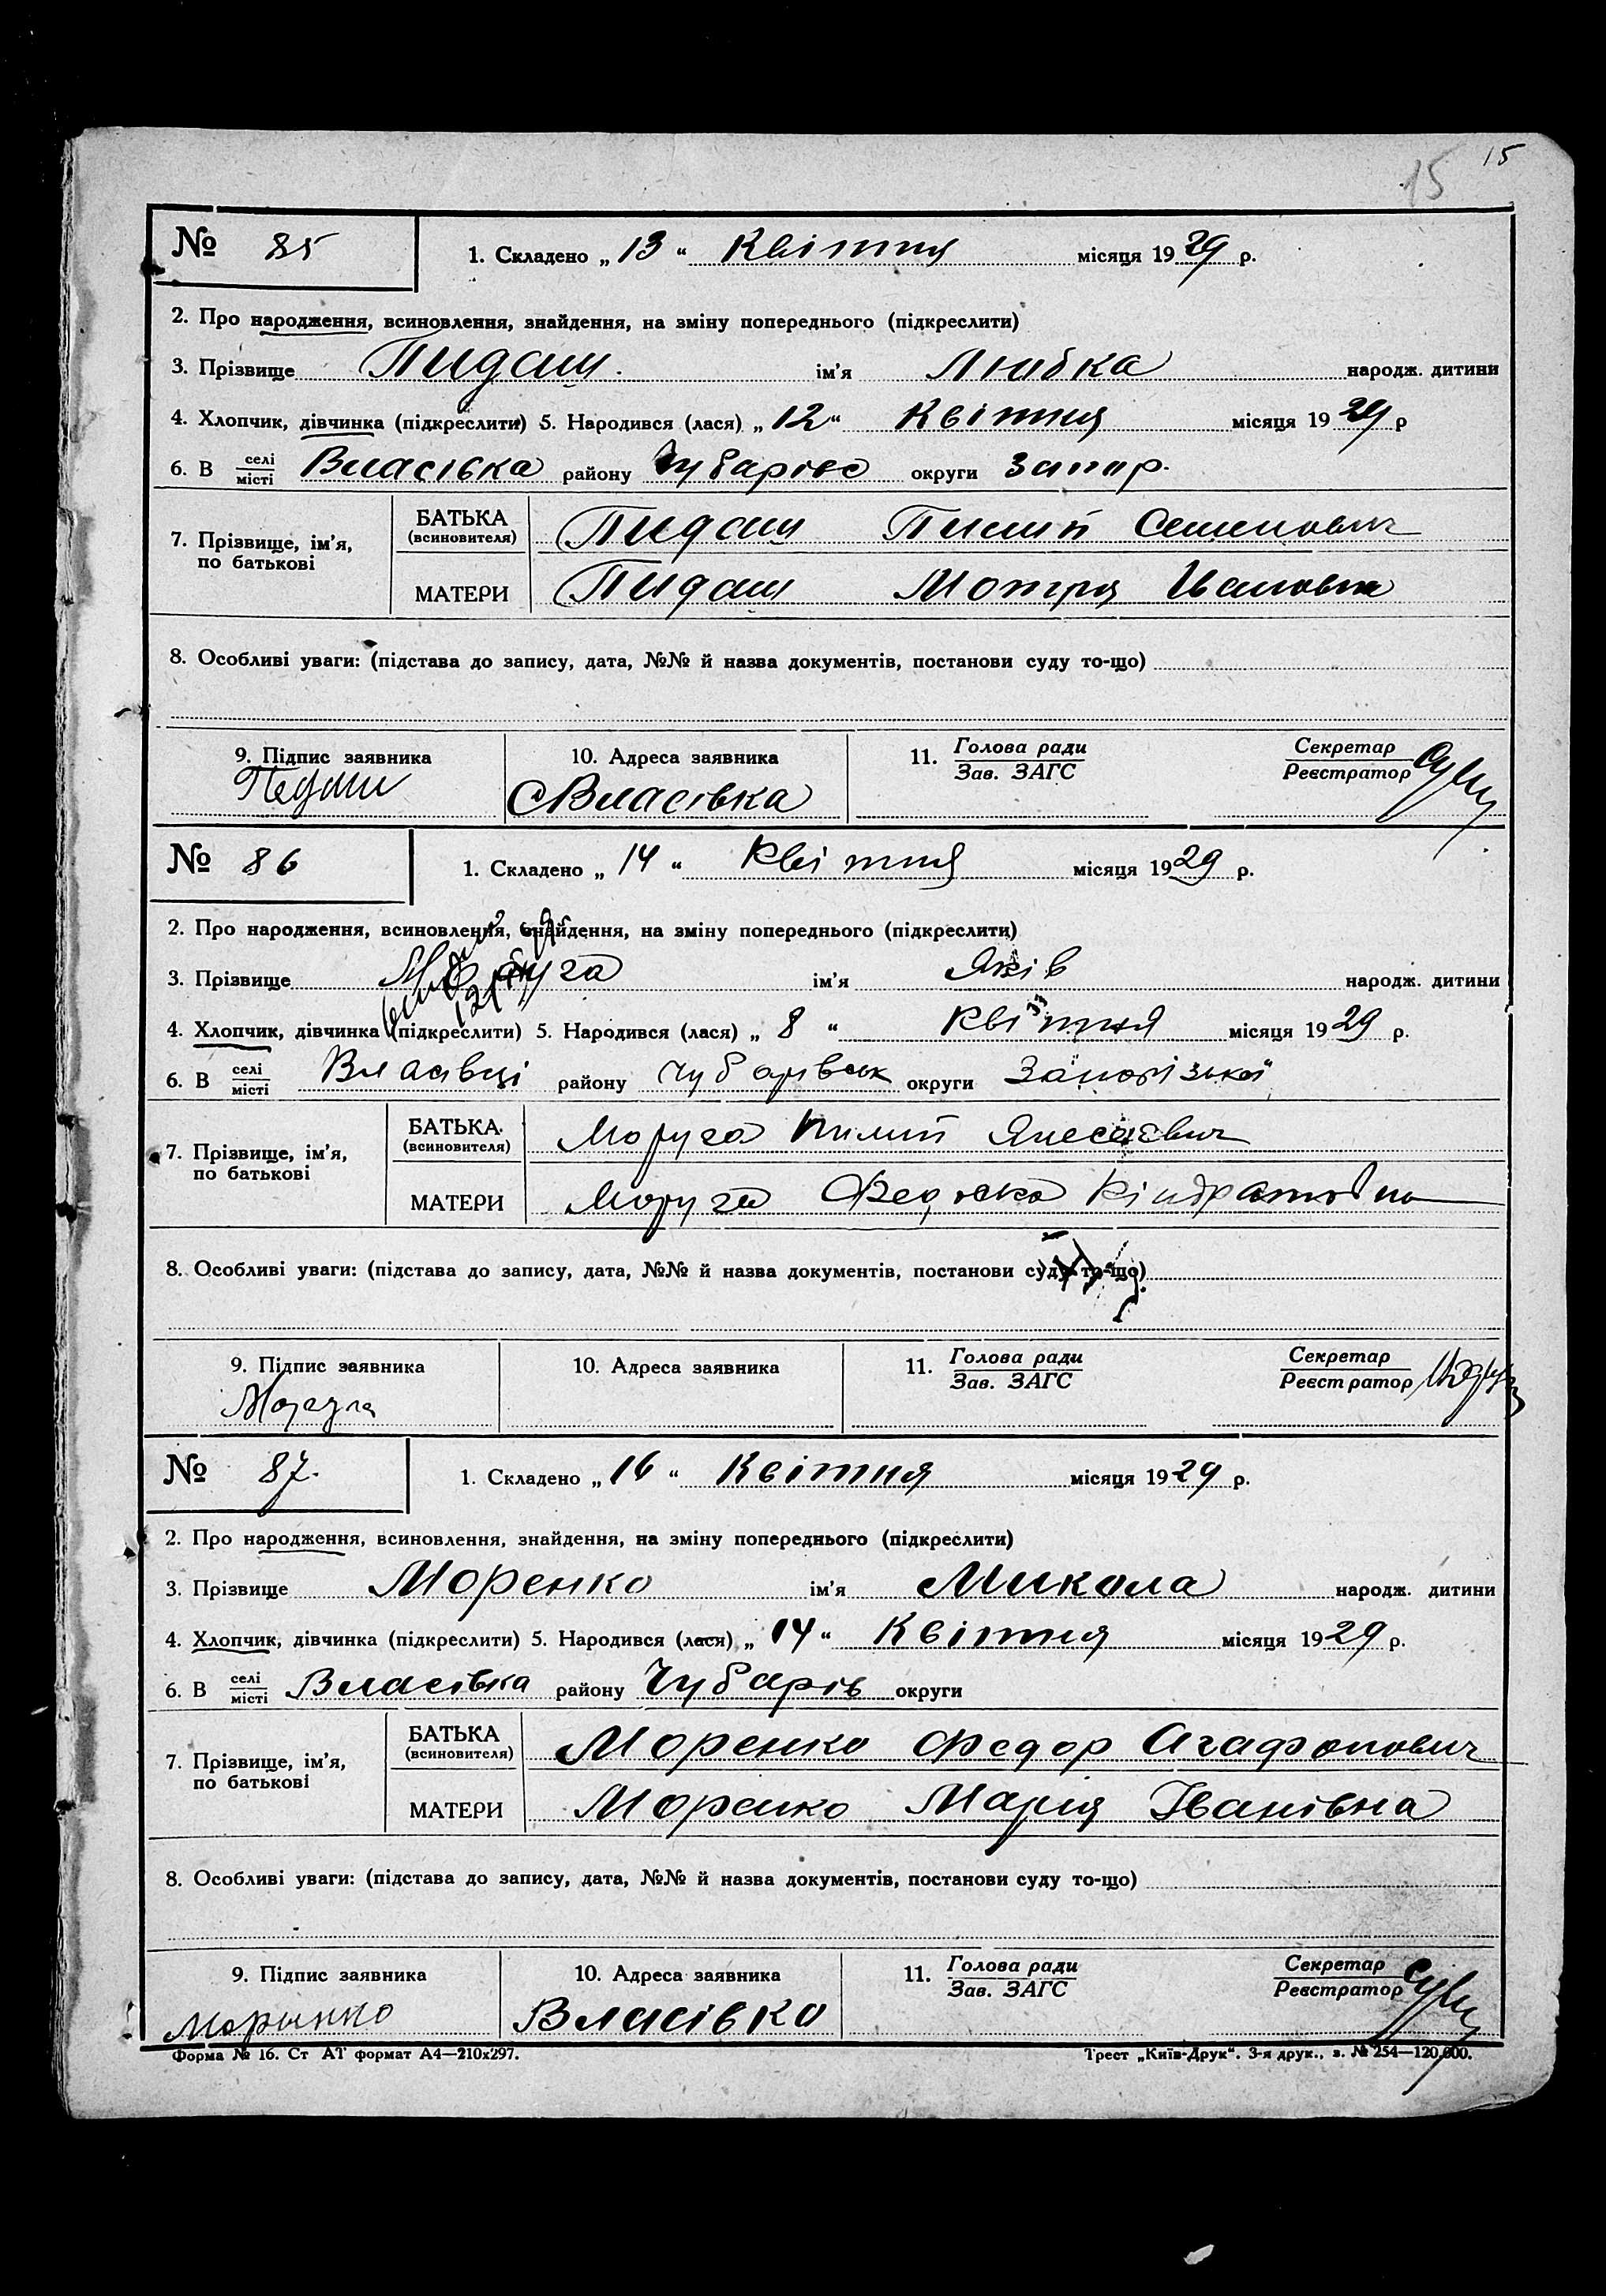 15 15
№ 85 1. Складено „ 13 “ Квітня місяця 1929 р.
2. Про народження, всиновлення, знайдення, на зміну попереднього (підкреслити)
3. Прізвище Пидаш. ім’я Любка народж. дитини
4. Хлопчик, дівчинка (підкреслити) 5. Народився (лася) „ 12 “ Квітня місяця 1929 р
6. В селі/місті Власівка району Чубарівс округи Запор.
7. Прізвище, ім’я, по батькові БАТЬКА (всиновителя) Пидаш Пилип Семенович
МАТЕРИ Пидаш Мотря Івановна
8. Особливі уваги: (підстава до запису, дата, №№ й назва документів, постанови суду то-що)
9. Підпис заявника 10. Адреса заявника 11. Голова ради/Зав. ЗАГС Секретар/Реєстратор
Педаш Власівка
№ 86 1. Складено „ 14 “ Квітня місяця 1929 р.
2. Про народження, всиновлення, знайдення, на зміну попереднього (підкреслити)
3. Прізвище ім’я Яків народж. дитини
4. Хлопчик, дівчинка (підкреслити) 5. Народився (лася) „ 8 “ Квітня місяця 1929 р.
6. В селі/місті Власівці району Чубарівськ округи Запорізької
7. Прізвище, ім’я, по батькові БАТЬКА (всиновителя) Моруга Пилип
МАТЕРИ Моруга Федоска Кіндратовна
8. Особливі уваги: (підстава до запису, дата, №№ й назва документів, постанови суду то-що)
9. Підпис заявника 10. Адреса заявника 11. Голова ради/Зав. ЗАГС Секретар/Реєстратор
№ 87. 1. Складено „ 16 “ Квітня місяця 1929 р.
2. Про народження, всиновлення, знайдення, на зміну попереднього (підкреслити)
3. Прізвище Моренко ім’я Микола народж. дитини
4. Хлопчик, дівчинка (підкреслити) 5. Народився (лася) „ 14 “ Квітня місяця 1929 р.
6. В селі/місті Власівка району Чубарів округи
7. Прізвище, ім’я, по батькові БАТЬКА (всиновителя) Моренко Федор Агафонович
МАТЕРИ Моренко Марія Іванівна
8. Особливі уваги: (підстава до запису, дата, №№ й назва документів, постанови суду то-що)
9. Підпис заявника 10. Адреса заявника 11. Голова ради/Зав. ЗАГС Секретар/Реєстратор
Морынко Власівка
Форма № 16. Ст АТ формат А4—210х297. Трест „Київ-Друк“. 3-я друк., з. № 254—120,000.